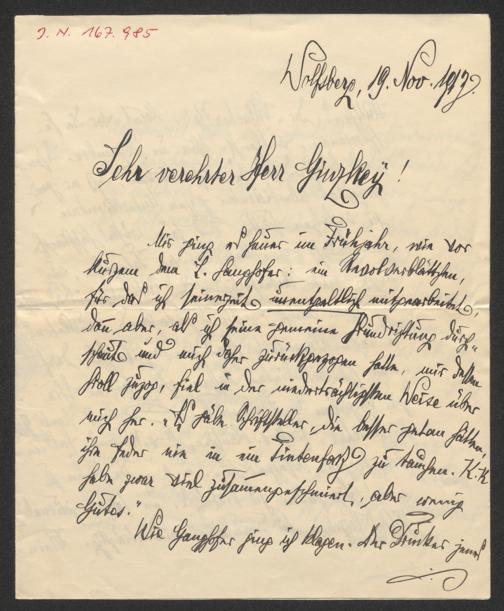 J. N. 167.985
Wolfsberg, 19. Nov. 1917.
Sehr verehrter Herr Ginzkey!
Mir ging es heuer im Frühjahr, wie vor
kurzem dem L. Ganghofer: ein Revolverblättchen,
für das ich seinerzeit unentgeltlich mitgearbeitet,
dan aber, als ich seine gemeine Grundrichtung durch-
schaut und mich daher zurückgezogen hatte, mir dessen
Groll zuzog, fiel in der niederträchtigsten Weise über
mich her. „Es gäbe Schriftsteller, die besser getan hätten,
ihre Feder nie in ein Tintenfaß zu tauchen. K.-K.
habe zwar viel zusammengeschmiert, aber wenig
Gutes."
Wie Ganghofer ging ich klagen. Der Drucker jenes